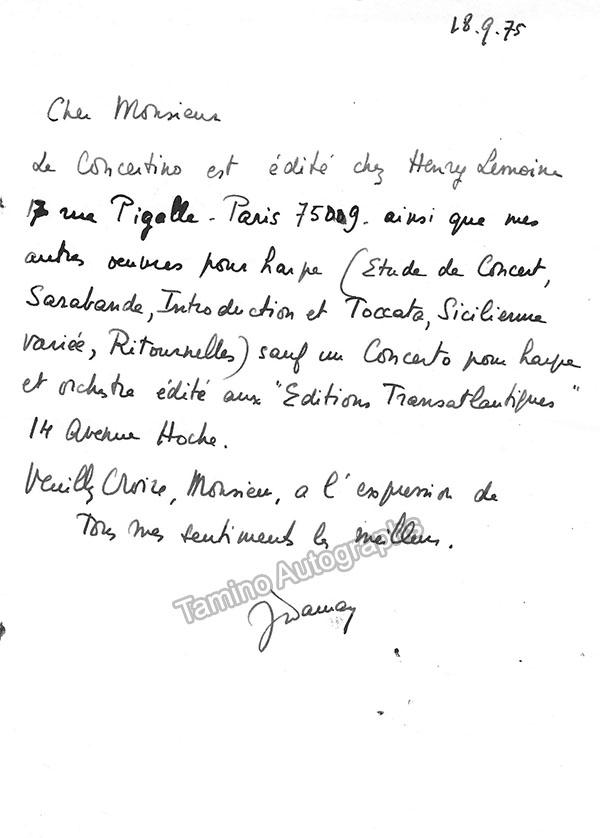 18.9.75
Cher Monsieur
Le Concertino est édité chez Henry Lemoine
17 rue Pigalle - Paris 75009. ainsi que mes
autres oeuvres pour harpe (Etude de Concert,
Sarabande, Introduction et Toccata, Sicilienne
variée, Ritournelles) sauf un Concerto pour harpe
et orchestre édité aux "Editions Transatlantiques"
14 Avenue Hoche.
Veuillez Croire, Monsieur, a l'expression de
Tous mes sentiments les meilleurs.
Tamino Autographs
JMDamay